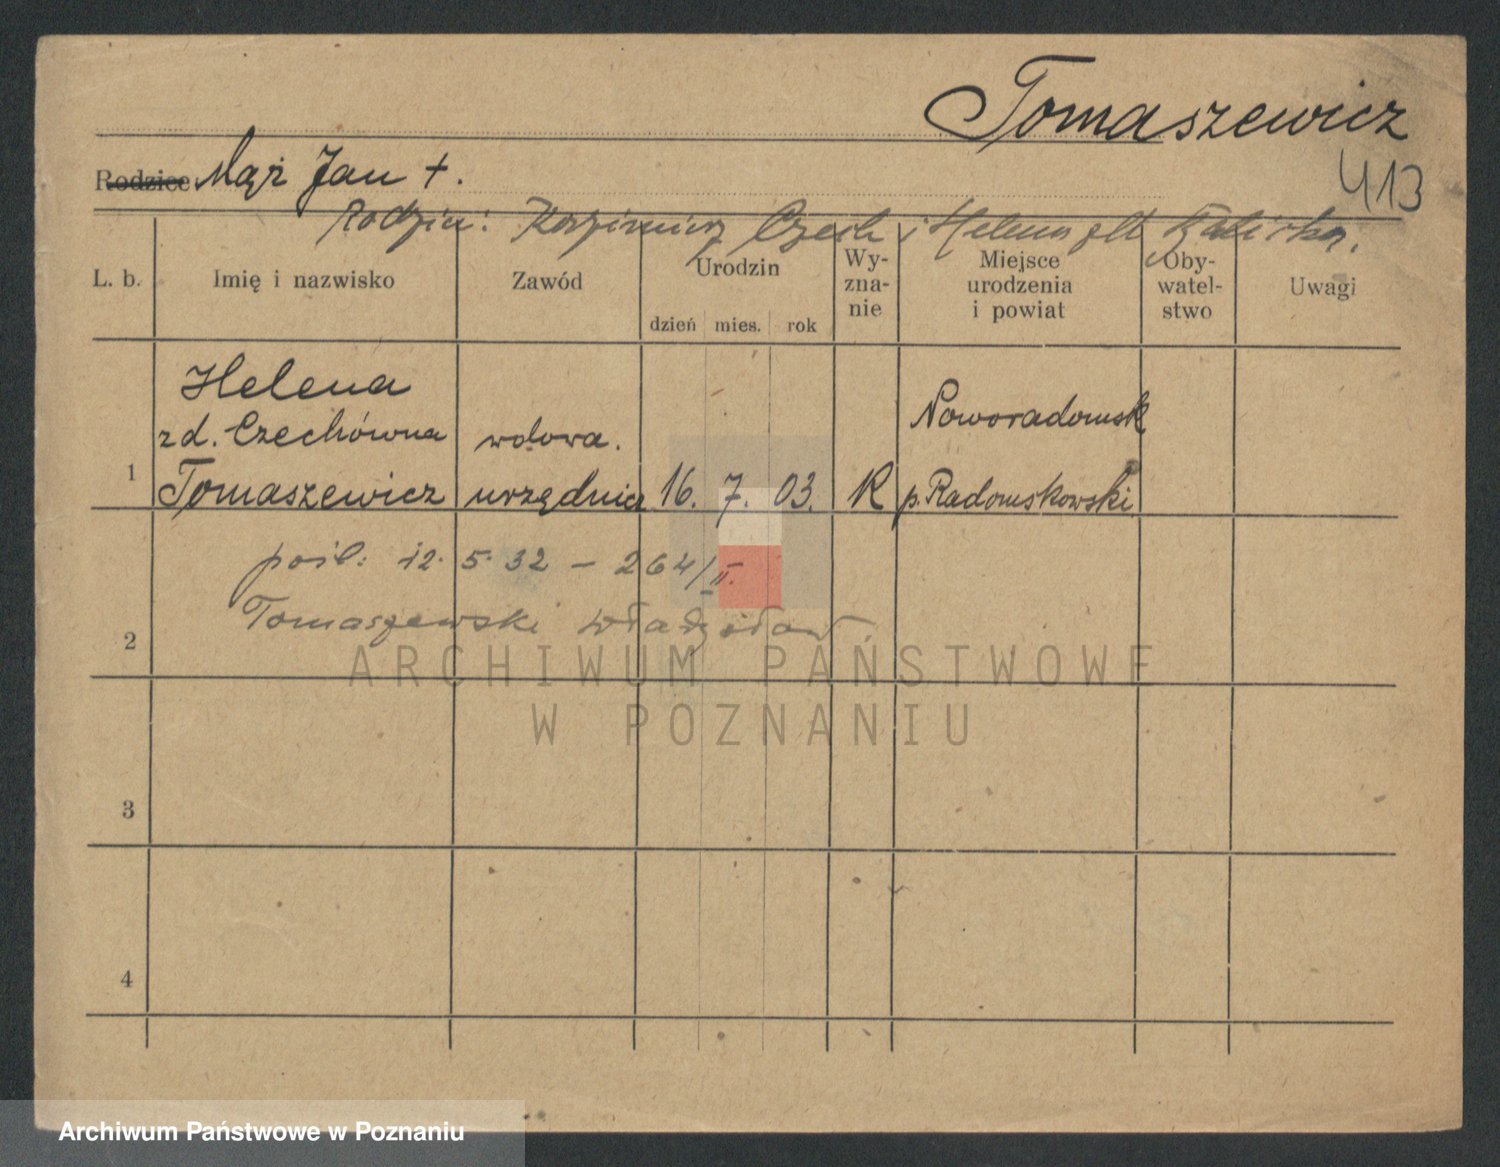 Tomaszewicz
413
Rodzice: Mąż Jan +.
Rodzice: Kazimierz Czech i Helena
L. b. Imię i nazwisko Zawód Urodzin dzień mies. rok Wy-zna-nie Miejsce urodzenia i powiat Oby-watel-stwo Uwagi
Helena
zd. Czechówna wdowa. Noworadomsk
1 Tomaszewicz urzędnicz 16. 7. 03. R p. Radomskowski
pośl: 12. 5. 32 – 264/II.
2 Tomaszewski Władysław
3
4
ARCHIWUM PAŃSTWOWE
W POZNANIU
Archiwum Państwowe w Poznaniu